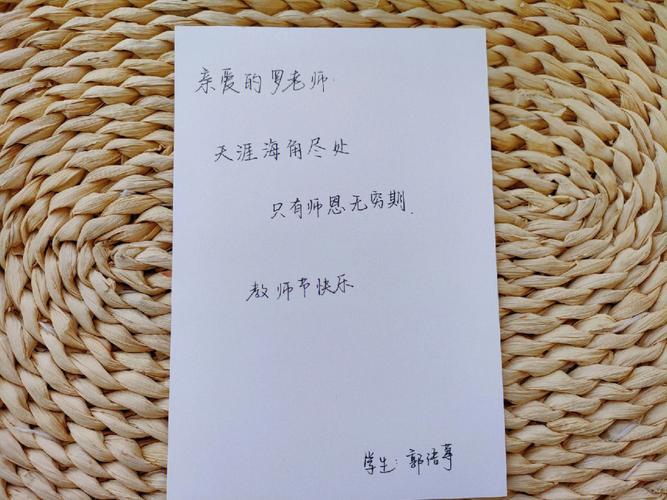 亲爱的罗老师
天涯海角尽处
只有师恩无穷期.
教师节快乐
学生: 郭